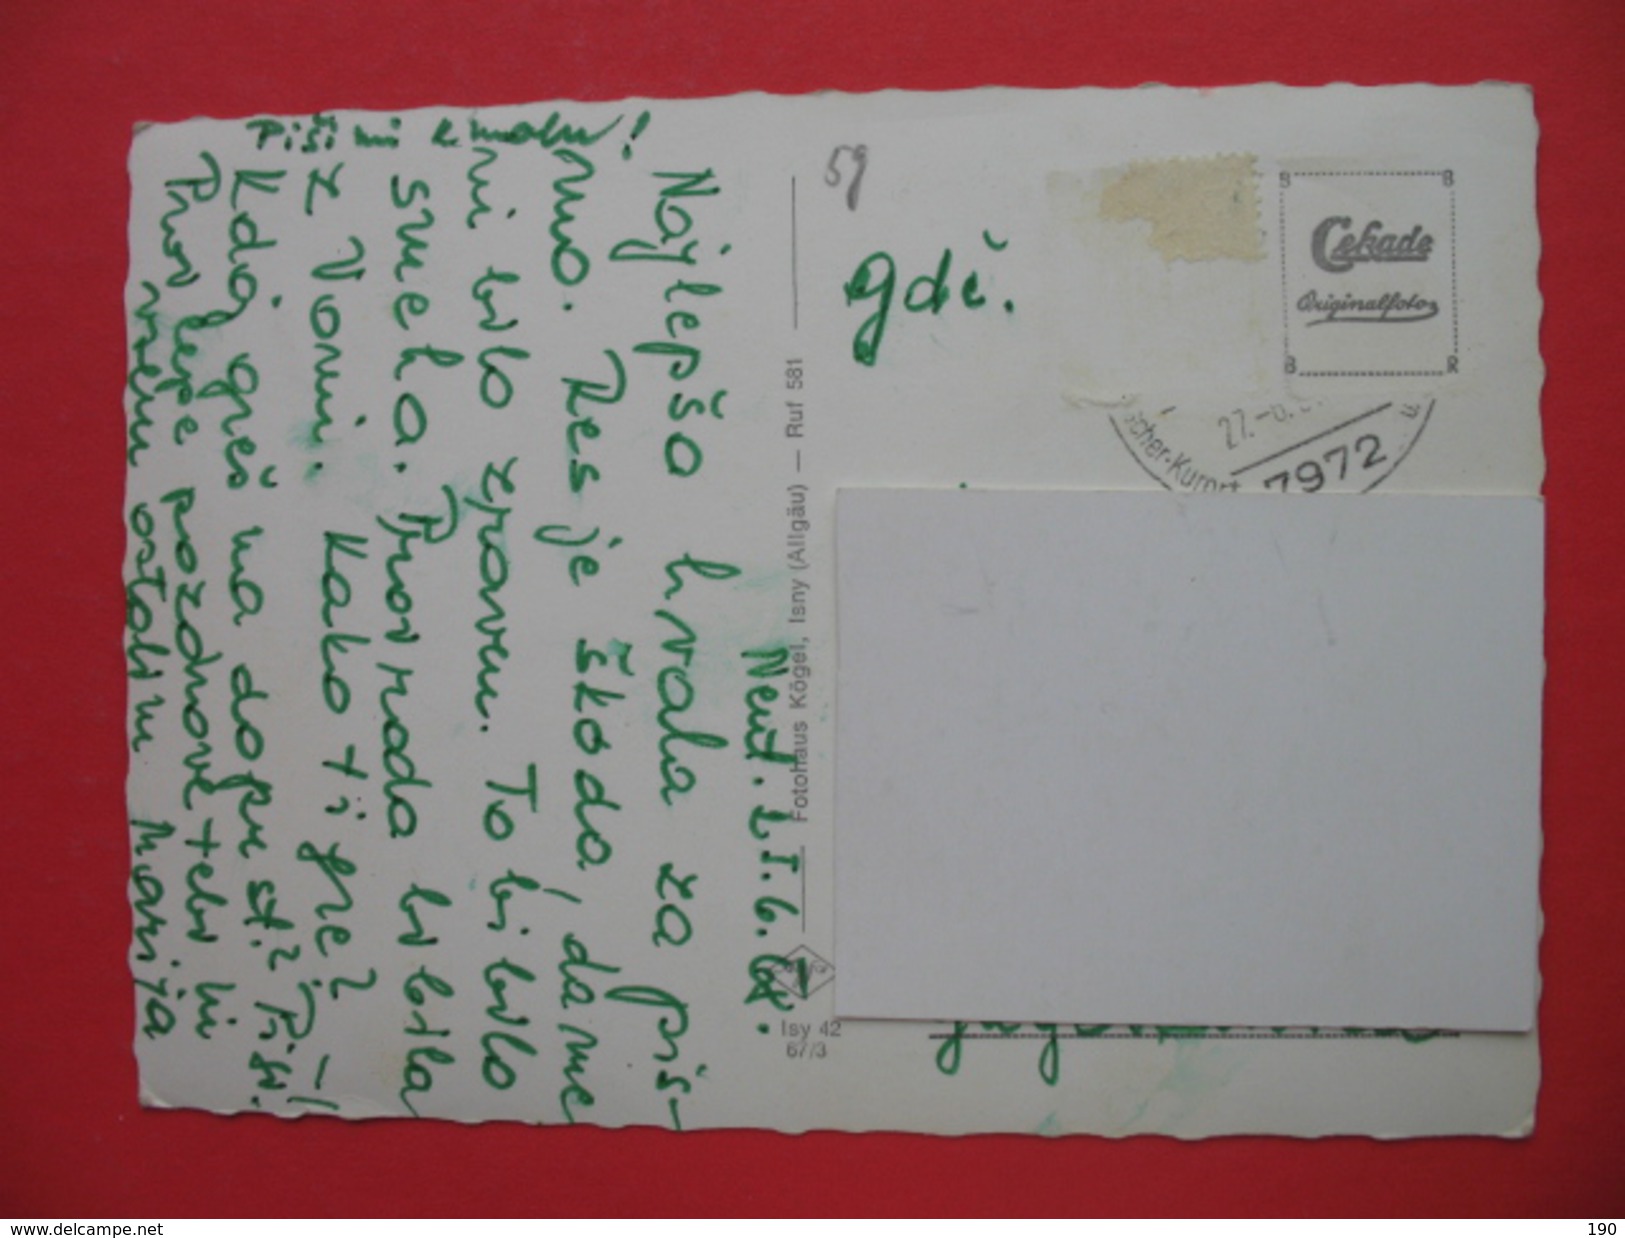 Neut. 25.6.68.
Najlepša hvala za piš-
mo. Res je škoda, da me
ni bilo zraven. To bi bilo
smeha. Prov rada bi bila
z Vami. Kako ti gre?
Kdaj greš na dopust? Piši.
Prov lepe pozdrave tebi in
vsem ostalim Marija
Piši mi kmalu!
59
gdč.
Cekade
Originalfoto
B B
B R
27.-6.
scher-Kurort
7972
Fotohaus Kögel, Isny (Allgäu) — Ruf 581
Isy 42
67/3
www.delcampe.net
190